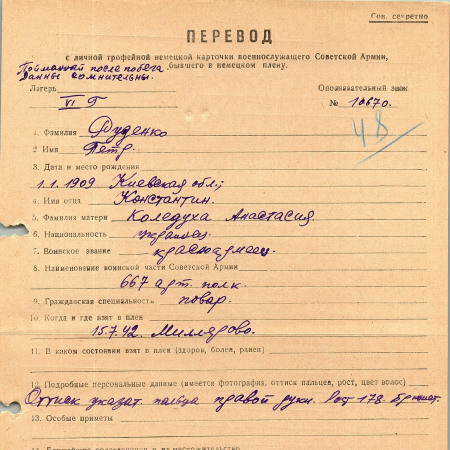 Сов. секретно
ПЕРЕВОД
с личной трофейной немецкой карточки военнослужащего Советской Армии,
бывшего в немецком плену.
Пойманный после побега
Данны сомнительны.
Лагерь Опознавательный знак
VI Г № 10670.
48
1. Фамилия Дуденко
2 Имя Петр.
3. Дата и место рождения
1.1.1909 Киевская обл;
4. Имя отца Константин.
5. Фамилия матери Коледуха Анастасия.
6. Национальность украинец
7. Воинское звание красноармеец.
8. Наименование воинской части Советской Армии
667 арт. полк.
9. Гражданская специальность повар.
10. Когда и где взят в плен
15.7.42. Миллярово.
11. В каком состоянии взят в плен (здоров, болен, ранен)
12. Подробные персональные данные (имеется фотография, оттиск пальцев, рост, цвет волос)
Оттиск указат. пальца правой руки. Рост 178. брюнет.
13. Особые приметы